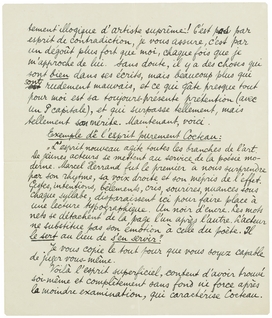 tement illogique d'artiste suprême! C'est pas par
esprit de contradiction, je vous assure, c'est par
un dépôt plus fort que moi, chaque fois que je
m'approche de lui. Sans doute, il y a des choses qui
sont bien dans ses écrits, mais beaucoup plus qui
sont rudement mauvais, et ce qui gâte presque tout
pour moi est sa toujours-présente prétention (avec
un P capitale), et qui surpasse tellement, mais
tellement son mérite. Maintenant, voici.
Exemple de l'esprit purement Cocteau:
L'esprit nouveau agite toutes les branches de l'art.
Le jeunes acteurs se mettent au service de la poésie mo-
derne. Marcel Herrand fut le premier à nous surprendre
par son rhythme, sa voix droite et son mépris de l'effet.
Gestes, intentions, bêlements, cris, sourires, nuances sous
chaque syllabe, disparaissent ici pour faire place à
une lecture typographique. Un noir d'encre. Les mots
nets se détachent de la page l'un après l'autre. L'acteur
ne substitue pas son émotion à celle du poète. Il
le sert au lieu de s'en servir!
Je vous copie le tout pour que vous soyez capable
de juger vous-même.
Voilà l'esprit superficiel, content d'avoir trouvé
soi-même et complètement sans fond ni force après
la moindre examination, qui caractérise Cocteau.